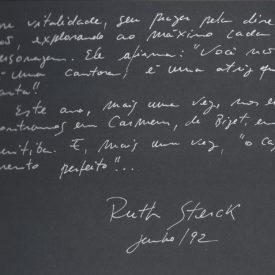 vitalidade, seu prazer pela
explorando ao máximo cada
Ele afirma: "Você não
é uma cantora, é uma atriz que
canta!!
Este ano, mais uma vez, nos en
contramos em Carmem, de Bizet, em
E, mais uma vez, "o
mento perfeito"...
Ruth Staerck
junho/92